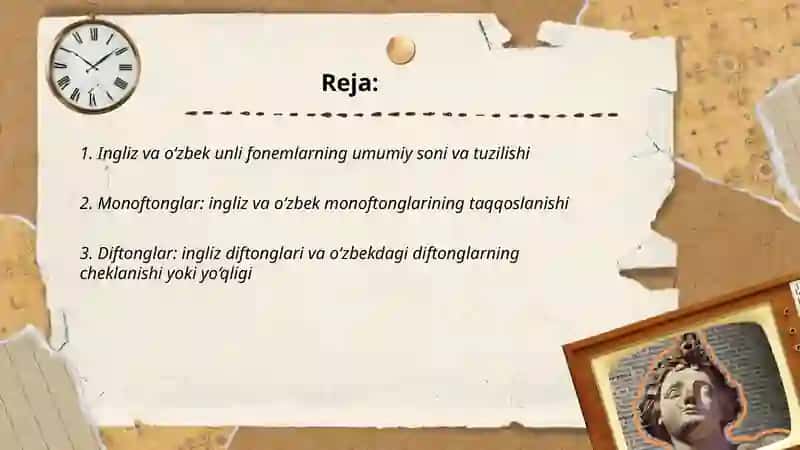 Reja:
1. Ingliz va o‘zbek unli fonemlarning umumiy soni va tuzilishi
2. Monoftonglar: ingliz va o‘zbek monoftonglarining taqqoslanishi
3. Diftonglar: ingliz diftonglari va o‘zbekdagi diftonglarning
cheklanishi yoki yo‘qligi